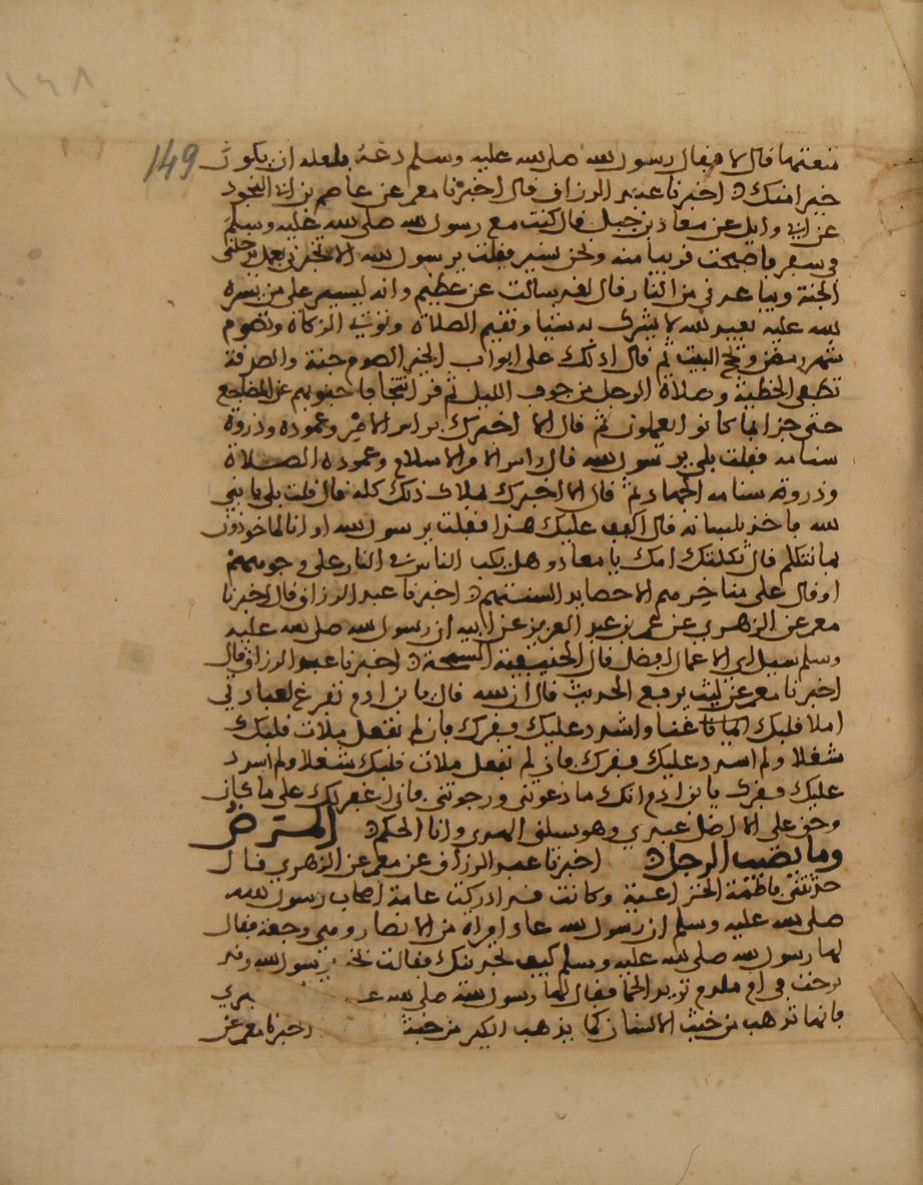 ١٤٨
149
منعتها قال لا فقال رسول الله صلى الله عليه وسلم دعه فلعله ان يكون
خيرا منك اخبرنا عبد الرزاق قال اخبرنا معمر عن عاصم بن ابي النجود
عن ابي وايل عن معاذ بن جبل قال كنت مع رسول الله صلى الله عليه وسلم
في سفر فاصبحت قريبا منه ونحن نسير فقلت يرسول الله الا تخبرني بعمل يدخلني
الجنة ويباعدني من النار قال لقد سالت عن عظيم وانه ليسير على من يسره
الله عليه تعبد الله لا تشرك به شيا وتقيم الصلاة وتوتي الزكاة وتصوم
شهر رمضن وتحج البيت ثم قال ادلك على ابواب الخير الصوم جنة والصدقة
تطفى الخطية وصلاة الرجل من جوف الليل ثم قرا تتجافا جنوبهم عن المضاجع
حتى جزا بما كانوا يعملون ثم قال الا اخبرك براس الامر وعموده وذروة
سنامه فقلت بلى يرسول الله قال راس الامر الاسلام وعموده الصلاة
وذروة سنامه الجهاد ثم قال الا اخبرك بملاك ذلك كله قال قلت بلى يا نبي
الله فاخذ بلسانه قال اكفف عليك هذا فقلت يرسول الله او انا لماخوذون
بما نتكلم قال ثكلتك امك يا معاذ وهل يكب الناس في النار على وجوههم
او قال على مناخرهم الا حصايد السنتهم اخبرنا عبد الرزاق قال اخبرنا
معمر عن الزهري عن عمر بن عبد العزيز عن ابيه ان رسول الله صلى الله عليه
وسلم سيل اي الاعمال افضل قال الحنيفية السمحة اخبرنا عبد الرزاق قال
اخبرنا معمر عن ليث يرفع الحديث قال ان الله قال يا بن ادم تفرغ لعبادتي
املا قلبك غنا واشد عليك فقرك فان لم تفعل ملات قلبك
شغلا ولم اسد عليك فقرك فان لم تفعل ملات قلبك شغلا ولم اسد
عليك فقرك يا بن ادم انك ما دعوتني ورجوتني فاني اغفر لك على ما كان
وحق على الا اضل عبدي وهو الهدى وانا الحكم المرض
وما يصيب الرجل اخبرنا عبد الرزاق عن معمر عن الزهري قال
حدثتني فاطمة الخزاعية وكانت قد ادركت عامة اصحاب رسول الله
صلى الله عليه وسلم ان رسول الله عاد امراة من الانصار وهي وجعة فقال
لها رسول الله صلى الله عليه وسلم كيف تجدينك فقالت بخير يرسول الله وقد
برحت بي ام ملدم تريد الحما فقال لها رسول الله صلى الله اصبري
فانها تذهب من خبث الانسان كما يذهب الكير من خبث اخبرنا معمر عن